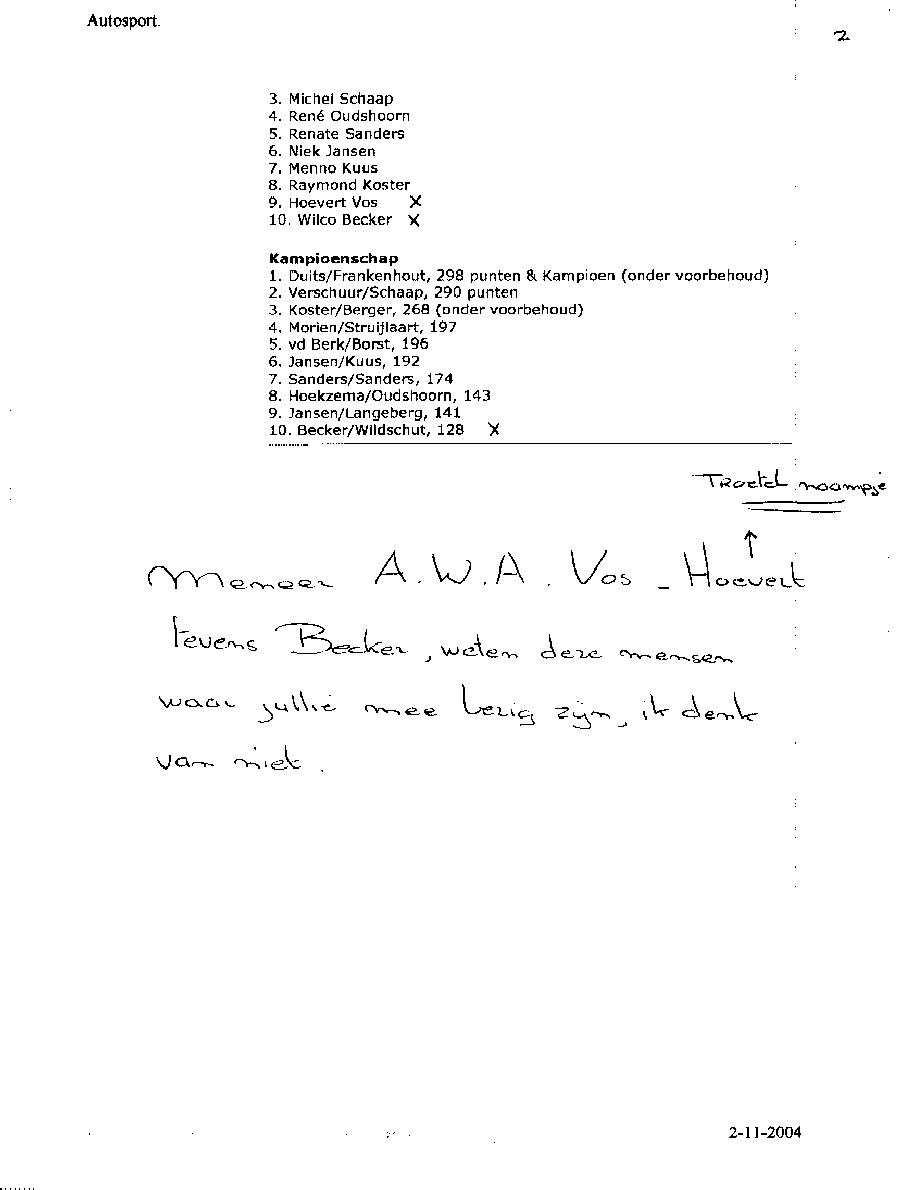 Autosport.
2
3. Michel Schaap
4. René Oudshoorn
5. Renate Sanders
6. Niek Jansen
7. Menno Kuus
8. Raymond Koster
9. Hoevert Vos X
10. Wilco Becker X
Kampioenschap
1. Duits/Frankenhout, 298 punten & Kampioen (onder voorbehoud)
2. Verschuur/Schaap, 290 punten
3. Koster/Berger, 268 (onder voorbehoud)
4. Morien/Struijlaart, 197
5. vd Berk/Borst, 196
6. Jansen/Kuus, 192
7. Sanders/Sanders, 174
8. Hoekzema/Oudshoorn, 143
9. Jansen/Langeberg, 141
10. Becker/Wildschut, 128 X
Troetel naampje
↑
Meneer A.W.A. Vos - Hoevert
tevens Becker, weten deze mensen
waar jullie mee bezig zijn, ik denk
van niet.
2-11-2004